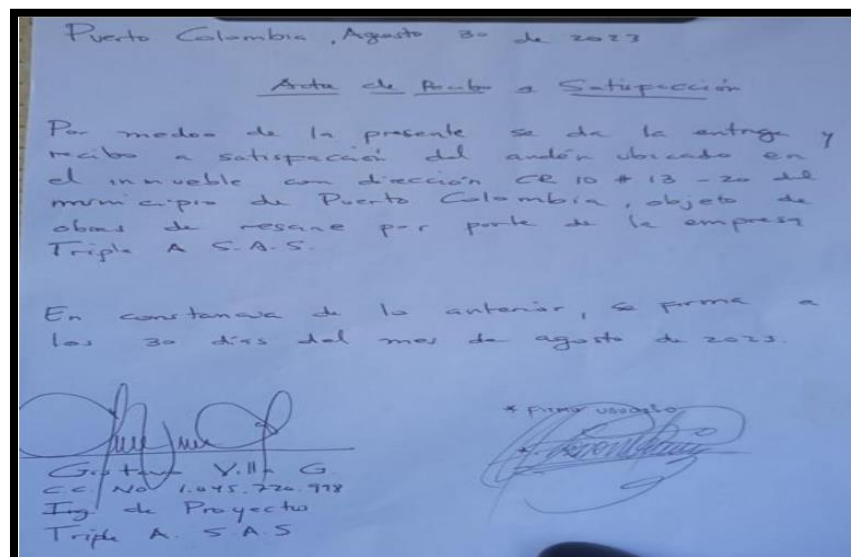 Puerto Colombia, Agosto 30 de 2023
Acta de Recibo a Satisfacción
Por medio de la presente se da la entrega y
recibo a satisfacción del andén ubicado en
el inmueble con dirección CR 10 # 13 - 20 del
municipio de Puerto Colombia, objeto de
obras de resane por parte de la empresa
Triple A S.A.S.
En constancia de lo anterior, se firma a
los 30 días del mes de agosto de 2023.
* Firma usuario
Gustavo Villa G.
C.C. No 1.045.720.998
Ing. de Proyecto
Triple A. S.A.S